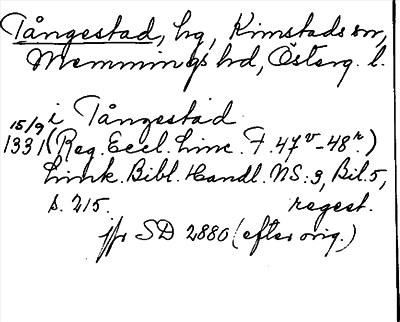 Tångestad, hg, Kimstads sn,
Memmings hd, Österg. l.
i Tångestad
15/9
1331 (Reg. Eccl. Linc. F. 47v-48r.)
Link. Bibl. Handl. NS:3, Bil. 5,
s. 215. regest.
jfr SD 2880 (efter orig.)